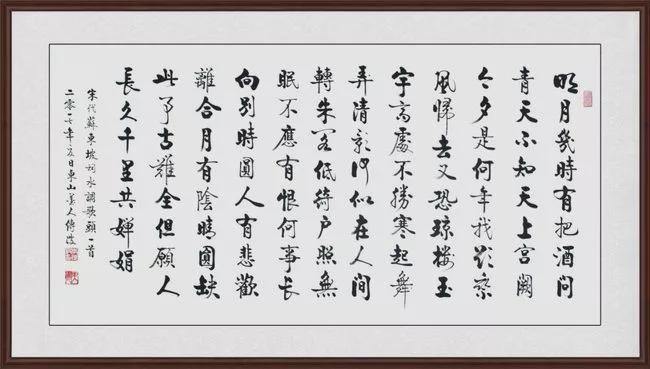 明月幾時有把酒問
青天不知天上宮闕
今夕是何年我欲乘
風歸去又恐瓊樓玉
宇高處不勝寒起舞
弄清影何似在人間
轉朱閣低綺戶照無
眠不應有恨何事長
向別時圓人有悲歡
離合月有陰晴圓缺
此事古難全但願人
長久千里共嬋娟
宋代蘇東坡詞水調歌頭一首
二零一七年日東山墨人傅